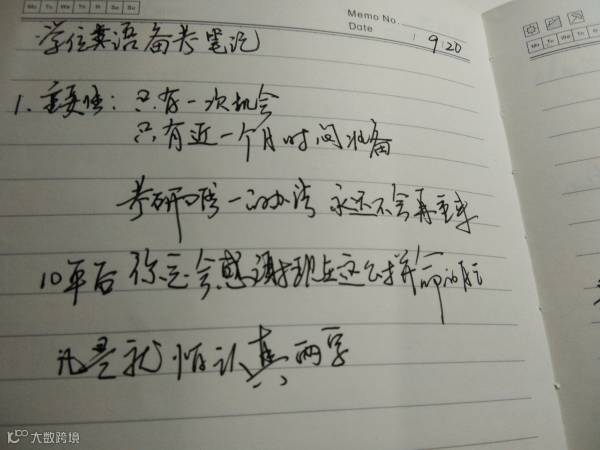 Mo Tu We Th Fr Sa Su
Memo No.
Date 9.20
学位英语备考笔记
1. 重要性: 只有一次机会
只有近一个月时间准备
考研唯一的办法 永远不会再重来
10年后你定会感谢现在这么拼命的自己
凡是就怕认真两字
Mo Tu We Th Fr
大数跨境